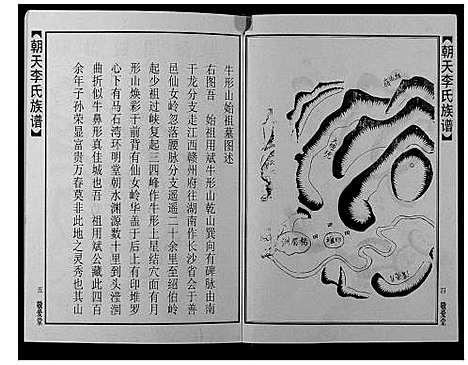 【朝天李氏族谱】
四
敬爱堂
牛形山始祖墓图述
右图吾　始祖用斌牛形山乾山巽向有碑脉由南
干龙分支走江西赣州府往湖南作长沙省会于善
邑仙女岭忽落腰脉分支遥遥二十余里至绍伯岭
起少祖过峡复起三四峰作牛形土星结穴面有月
形山焕彩于前背有仙女岭华盖于后上有印堆罗
心下有马石湾环明堂朝水渊源数十里到头滢洄
曲折似牛鼻形真佳城也吾　祖用斌公藏此四百
余年子孙荣显富贵万春莫非此地之灵秀也其山
【朝天李氏族谱】
五
敬爱堂